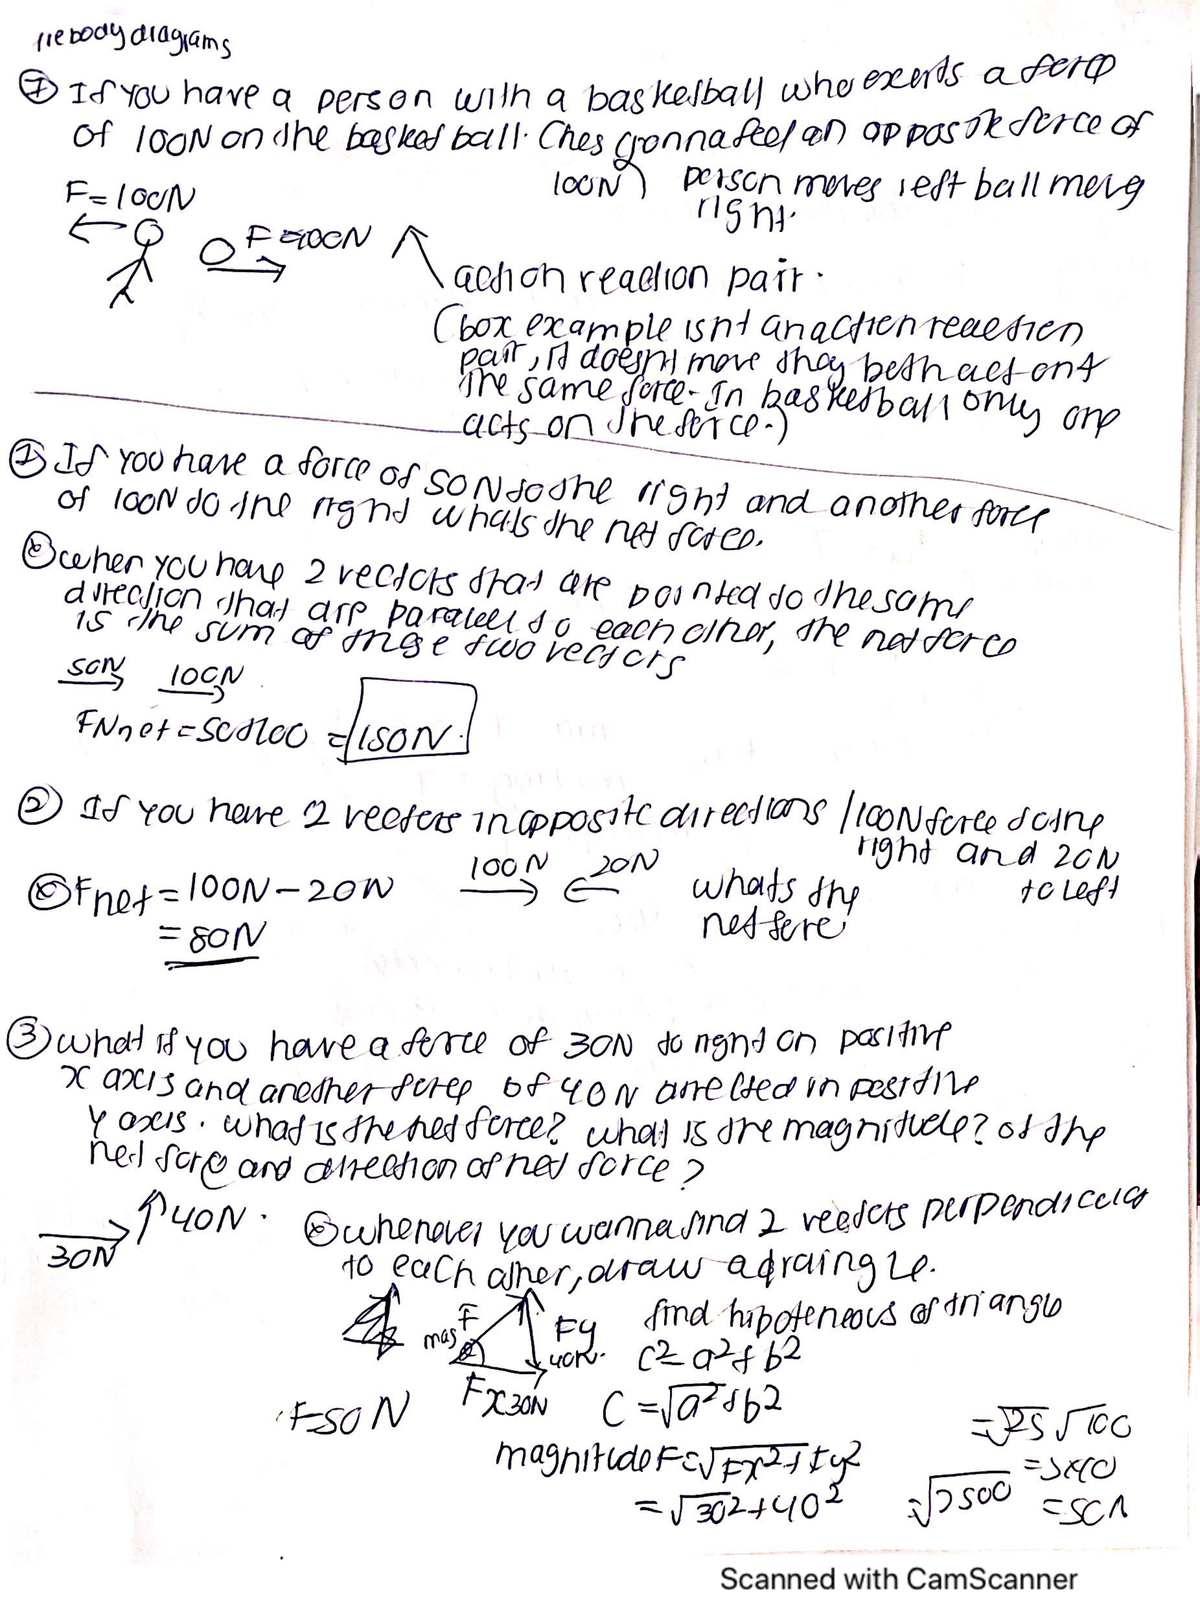 free body diagrams
① If you have a person with a basketball who exerts a force
of 100N on the basket ball. (hes gonna feel an opposite force of
100N) person moves left ball moves
right.
F=100N
F=100N
action reaction pair.
(box example isnt an action reaction
pair, it doesnt move they both act on
the same force. In basketball only one
acts on the force.)
① If you have a force of 50N to the right and another force
of 100N to the right whats the net force.
when you have 2 vectors that are pointed to the same
direction that are parallel to each other, the net force
is the sum of these two vectors
50N 100N
FNnet = 50+100 = 150N.
② If you have 2 vectors in opposite directions / 100N force to the
right and 20N
to left
100N 20N whats the
net force
Fnet = 100N - 20N
= 80N
③ what if you have a force of 30N to right on positive
x axis and another force of 40N directed in positive
y axis. what is the net force? what is the magnitude? of the
net force and direction of net force?
30N 40N.
whenever you wanna find 2 vectors perpendicular
to each other, draw a traingle.
find hipoteneous of triangle
F Fy
40N.
Fx 30N
c² = a²+b²
F=50N
C = √a²+b²
magnitude F = √Fx²+Fy²
= √30²+40²
= √2500
= √25 √100
= 5×10
= 50N
Scanned with CamScanner